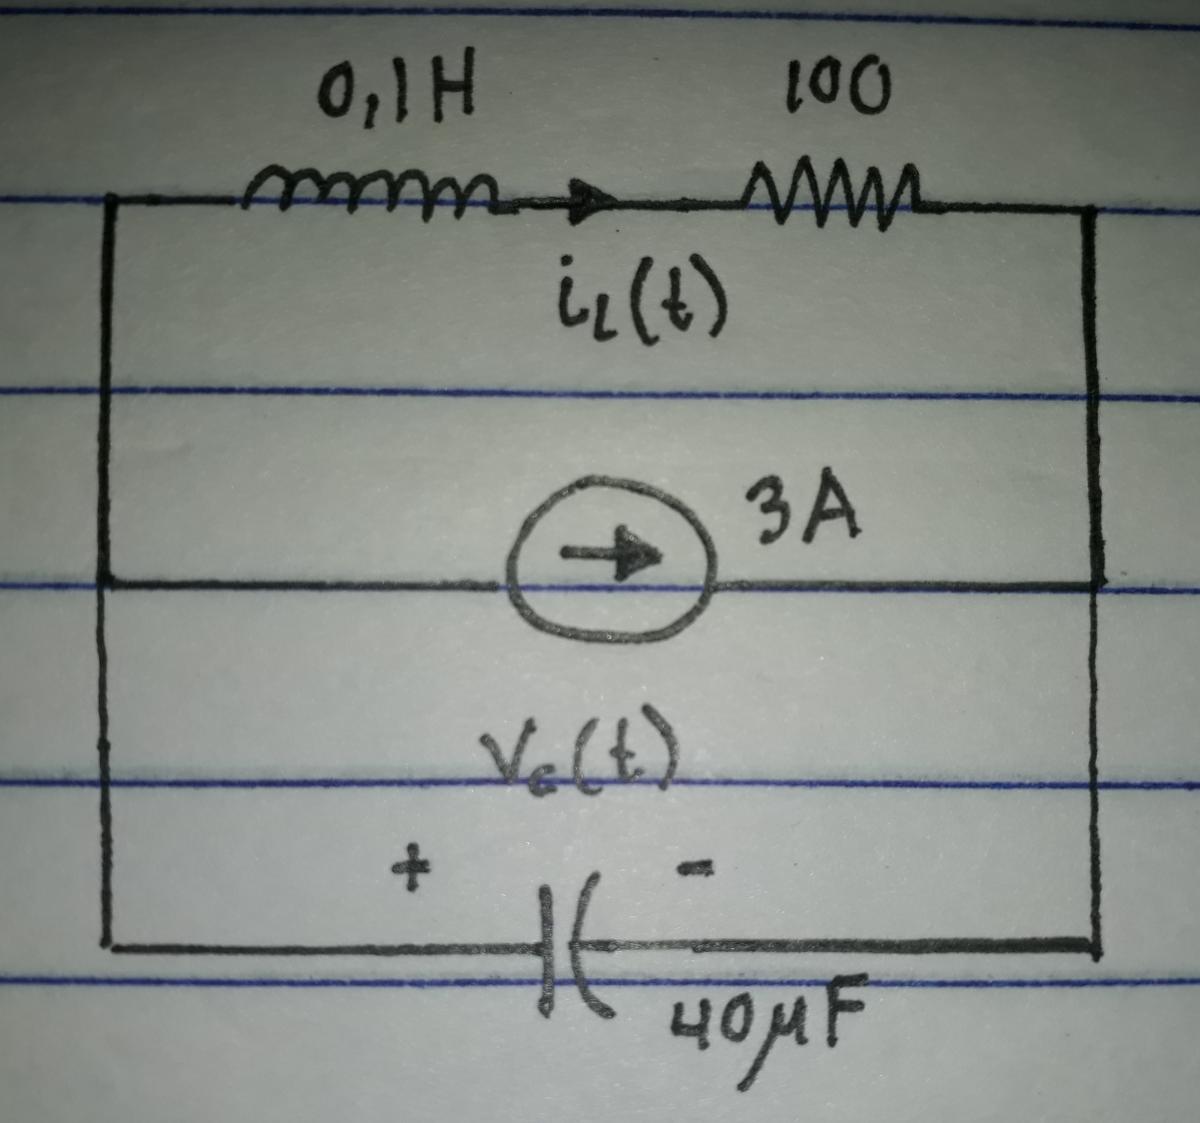 0,1H 100
iL(t)
3A
Vc(t)
+ -
40μF